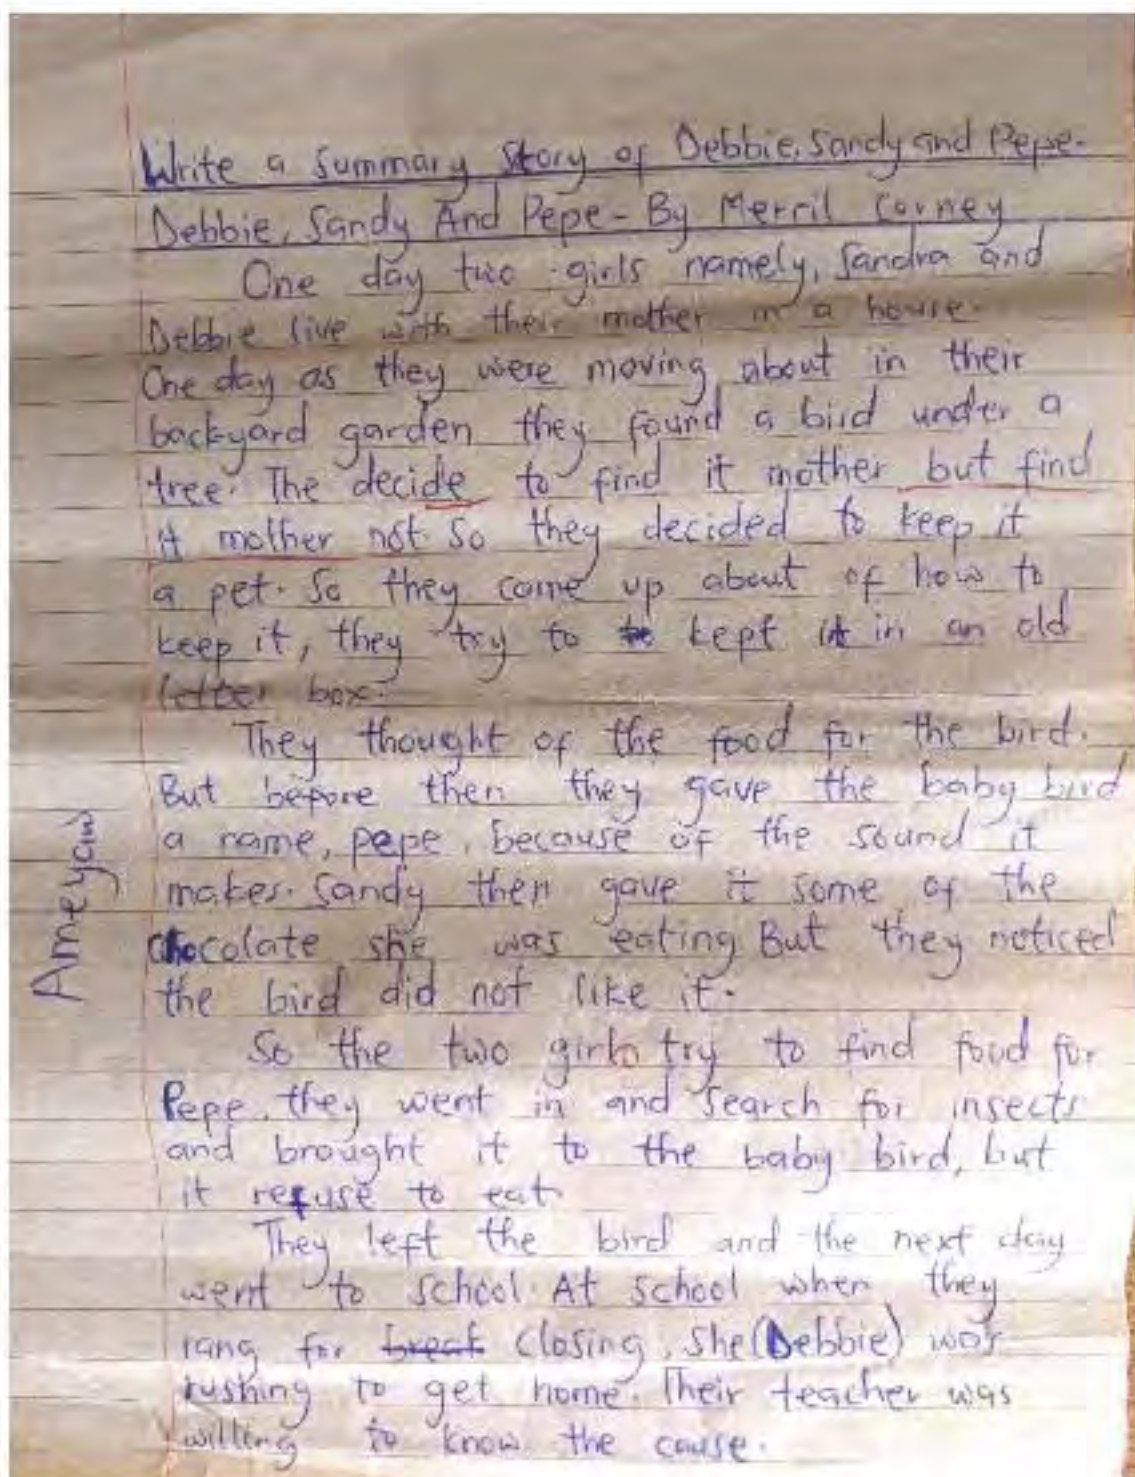 Write a summary Story of Debbie, Sandy and Pepe.
Debbie, Sandy And Pepe - By Merril Corney
One day two girls namely, Sandra and
Debbie live with their mother in a house.
One day as they were moving about in their
backyard garden they found a bird under a
tree. The decide to find it mother but find
it mother not. So they decided to keep it
a pet. So they come up about of how to
keep it, they try to to kept it in an old
letter box.
They thought of the food for the bird.
But before then they gave the baby bird
a name, pepe, because of the sound it
makes. Sandy then gave it some of the
chocolate she was eating. But they noticed
the bird did not like it.
So the two girls try to find food for
Pepe, they went in and search for insects
and brought it to the baby bird, but
it refuse to eat.
They left the bird and the next day
went to school. At school when they
rang for break closing, she (Debbie) was
rushing to get home. Their teacher was
willing to know the cause.
Ameyaw